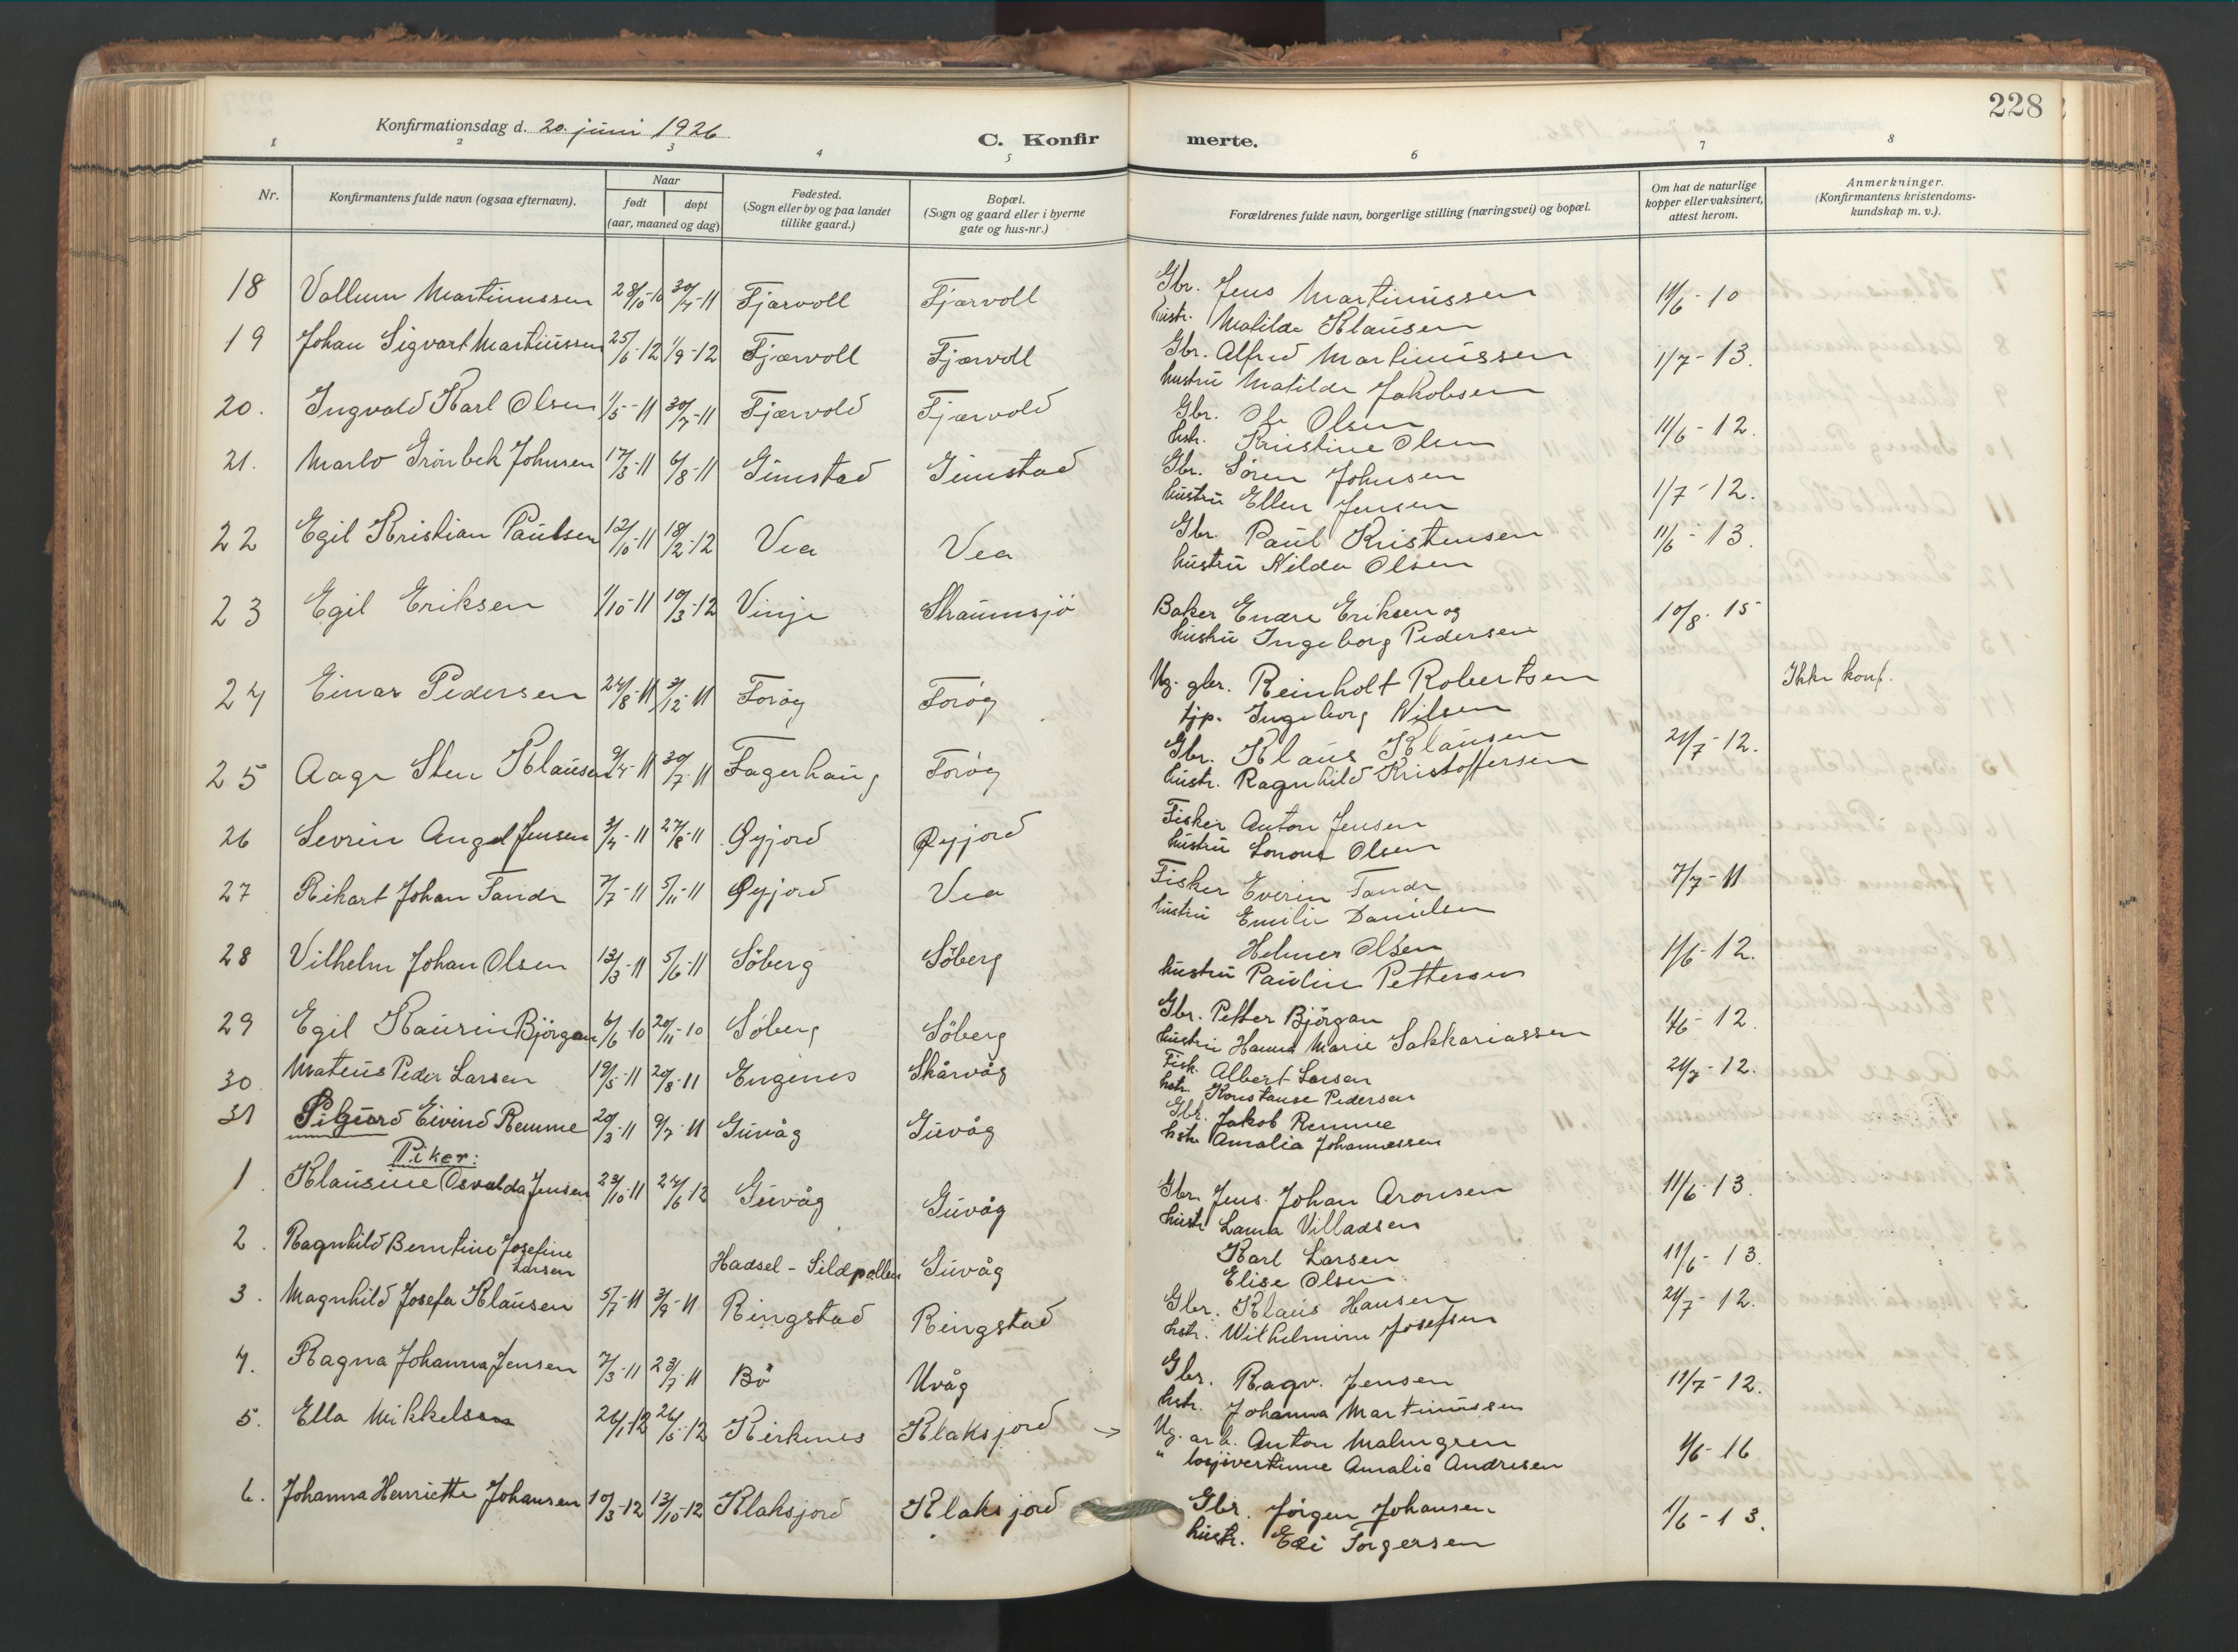 228
Konfirmationsdag d. 20. juni 1926
C. Konfirmerte.
1 2 3 4 5 6 7 8
Nr.
Konfirmantens fulde navn (ogsaa efternavn).
Naar
født døpt
(aar, maaned og dag)
Fødested.
(Sogn eller by og paa landet
tillike gaard.)
Bopæl.
(Sogn og gaard eller i byerne
gate og hus-nr.)
Forældrenes fulde navn, borgerlige stilling (næringsvei) og bopæl.
Om hat de naturlige
kopper eller vaksinert,
attest herom.
Anmerkninger.
(Konfirmantens kristendoms-
kundskap m. v.).
18 Vallum Martinussen 28/10-10 30/7-11 Fjærvoll Fjærvoll Gbr. Jens Martinussen 11/6-10
hustr. Matilde Klausen
19 Johan Sigvart Martinussen 25/6-12 1/9-12 Fjærvoll Fjærvoll Gbr. Alfred Martinussen 1/7-13.
hustru Matilde Jakobsen
20. Ingvald Karl Olsen 1/5-11 30/7-11 Fjærvold Fjærvold Gbr. Ole Olsen 11/6-12
hstr. Kristine Olsen
21. Marlo Grönbek Johnsen 17/3-11 6/8-11 Gimstad Gimstad Gbr. Sören Johnsen 1/7-12.
hustru Ellen Jensen
22 Egil Kristian Paulsen 12/10-11 18/2-12 Vea Vea Gbr. Paul Kristensen 11/6-13.
hustru Hilda Olsen
23 Egil Eriksen 1/10-11 10/3-12 Vinje Straumsjö Baker Endre Eriksen og 10/8-15
hustru Ingeborg Pedersen
24 Einar Pedersen 24/8-11 31/12-11 Foröy Foröy Ug. gbr. Reinholt Robertsen Ikke konf.
tjp. Ingeborg Nilsen
25 Aage Sten Klausen 9/4-11 30/7-11 Fagerhaug Foröy Gbr. Klaus Klausen 21/7-12.
hustr. Ragnhild Kristoffersen
26 Sevrin Angel Jensen 3/4-11 27/8-11 Øyjord Øyjord Fisker Anton Jensen
hustru Lonone Olsen
27 Rikart Johan Tande 7/7-11 5/11-11 Øyjord Vea Fisker Everin Tande 7/7-11
hustru Emilie Danielsen
28 Vilhelm Johan Olsen 13/3-11 5/6-11 Söberg Söberg Helmer Olsen 1/6-12.
hustru Pauline Pettersen
29 Egil Kaurin Björgan 6/6-10 20/11-10 Söberg Söberg Gbr. Petter Björgan 1/6-12
hustru Hanna Marie Sakkariassen
30 Mateus Peder Larsen 19/5-11 20/8-11 Engenes Skårvåg Fisk. Albert Larsen 21/7-12.
hstr. Konstanse Pedersen
31 Sigurd Eivind Remme 20/3-11 9/7-11 Guvåg Guvåg Gbr. Jakob Remme
hstr. Amalia Johannessen
Piker:
1. Klausine Osvalda Jensen 23/10-11 24/6-12 Guvåg Guvåg Gbr. Jens Johan Aronsen 11/6-13.
hustr Laura Villadsen
2. Ragnhild Berntine Josefine
Larsen Hadsel-Sildpollen Guvåg Karl Larsen 11/6-13.
Elise Olsen
3. Magnhild Josefa Klausen 5/7-11 3/9-11 Ringstad Ringstad Gbr. Klaus Hansen 21/7-12.
hstr. Wilhelmine Josefsen
4. Ragna Johanna Jensen 7/3-11 23/7-11 Bö Uvåg Gbr. Ragv. Jensen 11/7-12.
hstr. Johanna Martinussen
5. Ella Mikkelsen 26/1-12 26/5-12 Kirkenes Klaksjord Ug. arb. Anton Malmgren 4/6-16
" losjivertinne Amalia Andresen
6. Johanna Henriette Johansen 10/3-12 13/10-12 Klaksjord Klaksjord Gbr. Jörgen Johansen 1/6-13.
hustr. Edi Torgersen